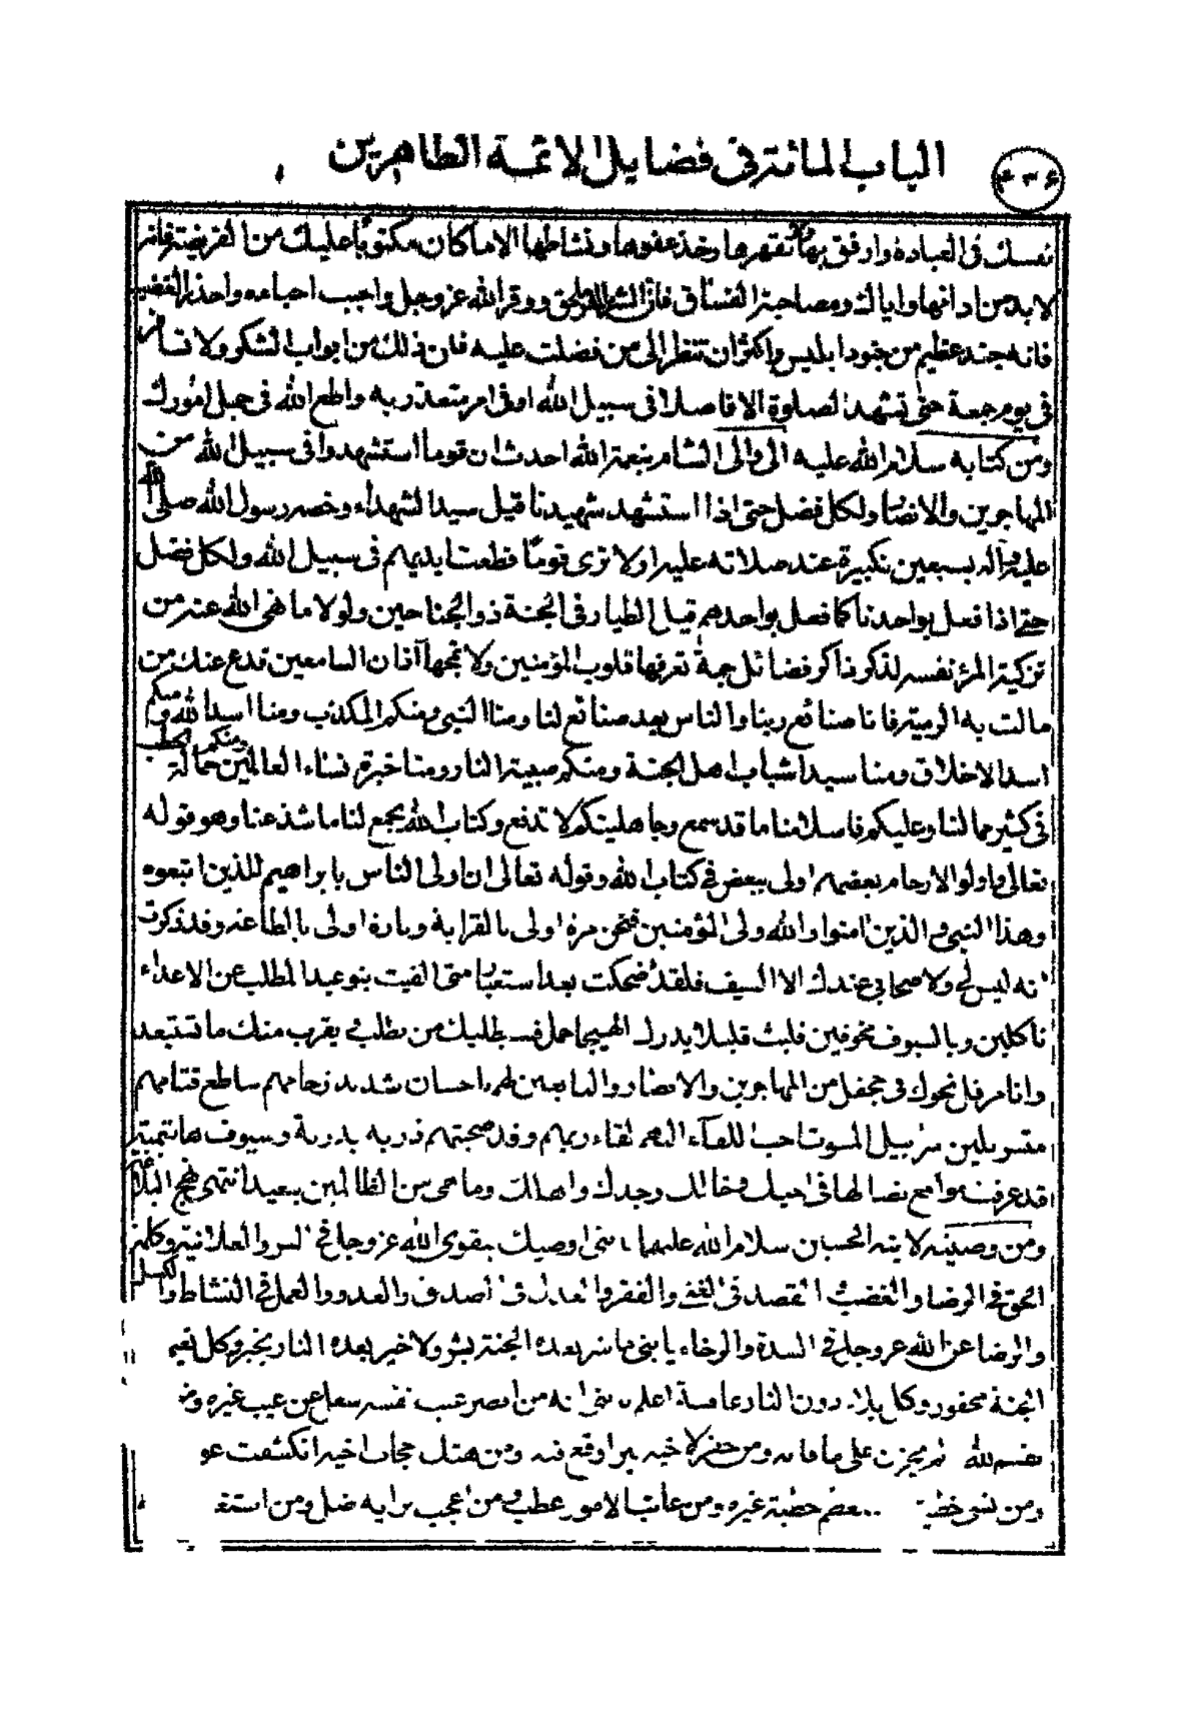 الباب المائة في فضايل الائمة الطاهرين
نفسك في العبادة وارفق بها ولا تقهرها وخذ عفوها ونشاطها الا ما كان مكتوبا عليك من الفريضة فانه
لا بد من ادائها واياك ومصاحبة الفساق فان الشر بالشر ملحق ووقر الله عز وجل واحبب احباءه واحذر الغضب
فانه جند عظيم من جنود ابليس واكثر ان تنظر الى من فضلت عليه فان ذلك من ابواب الشكر ولا تسافر
في يوم جمعة حتى تشهد الصلوة الا فاصلا في سبيل الله او في امر تعذر به واطع الله في جمل امورك
ومن كتابه سلام الله عليه الى والى الشام بنعمة الله احدث ان قوما استشهدوا في سبيل الله من
المهاجرين والانصار ولكل فضل حتى اذا استشهد شهيدنا قيل سيد الشهداء وخصه رسول الله صلى الله
عليه واله بسبعين تكبيرة عند صلاته عليه او لا ترى قوما قطعت ايديهم في سبيل الله ولكل فضل
حتى اذا فعل بواحدنا كما فعل بواحدهم قيل الطيار في الجنة ذو الجناحين ولولا ما نهى الله عنه من
تزكية المرء نفسه لذكر ذاكر فضائل جمة تعرفها قلوب المؤمنين ولا تمجها آذان السامعين فدع عنك من
مالت به الرمية فانا صنائع ربنا والناس بعد صنائع لنا ومنا النبي ومنكم المكذب ومنا اسد الله ومنكم
اسد الاخلاق ومنا سيدا شباب اهل الجنة ومنكم صبية النار ومنا خيرة نساء العالمين ومنكم حمالة الحطب
في كثير مما لنا وعليكم فاسلامنا ما قد سمع وجاهليتكم لا تدفع وكتاب الله يجمع لنا ما شذ عنا وهو قوله
تعالى واولو الارحام بعضهم اولى ببعض في كتاب الله وقوله تعالى ان اولى الناس بابراهيم للذين اتبعوه
وهذا النبي والذين امنوا والله ولى المؤمنين فنحن مرة اولى بالقرابة وتارة اولى بالطاعة وقد ذكرت
انه ليس لي ولاصحابي عندك الا السيف فلقد اضحكت بعد استعبار متى الفيت بنو عبد المطلب عن الاعداء
ناكلين وبالسيوف مخوفين فلبث قليلا يدرك الهيجا حمل فسيطلبك من تطلب ويقرب منك ما تستبعد
وانا مرقل نحوك في جحفل من المهاجرين والانصار والتابعين لهم باحسان شديد زحامهم ساطع قتامهم
متسربلين سربيل الموت احب اللقاء اليهم لقاء ربهم وقد صحبتهم ذرية بدرية وسيوف هاشمية
قد عرفت مواقع نصالها في اخيك وخالك وجدك واهلك وما هي من الظالمين ببعيد انتهى نهج البلاغة
ومن وصيته لابنه الحسين سلام الله عليهما يا بني اوصيك بتقوى الله عز وجل في السر والعلانية وكلمة
الحق في الرضا والغضب القصد في الغنى والفقر والعدل في الصديق والعدو والعمل في النشاط والكسل
والرضا عن الله عز وجل في الشدة والرخاء يا بني ما شر بعده الجنة بشر ولا خير بعده النار بخير وكل نعيم
الجنة محقور وكل بلاء دون النار عافية اعلم يا بني انه من ابصر عيب نفسه شغل عن عيب غيره ومن
بقسم الله لم يحزن على ما فاته ومن حفر لاخيه بيرا وقع فيه ومن هتك حجاب اخيه انكشفت عو
ومن نسى خطيئته استعظم خطيئة غيره ومن عاتب الامور عطب ومن اعجب برايه ضل ومن استغ